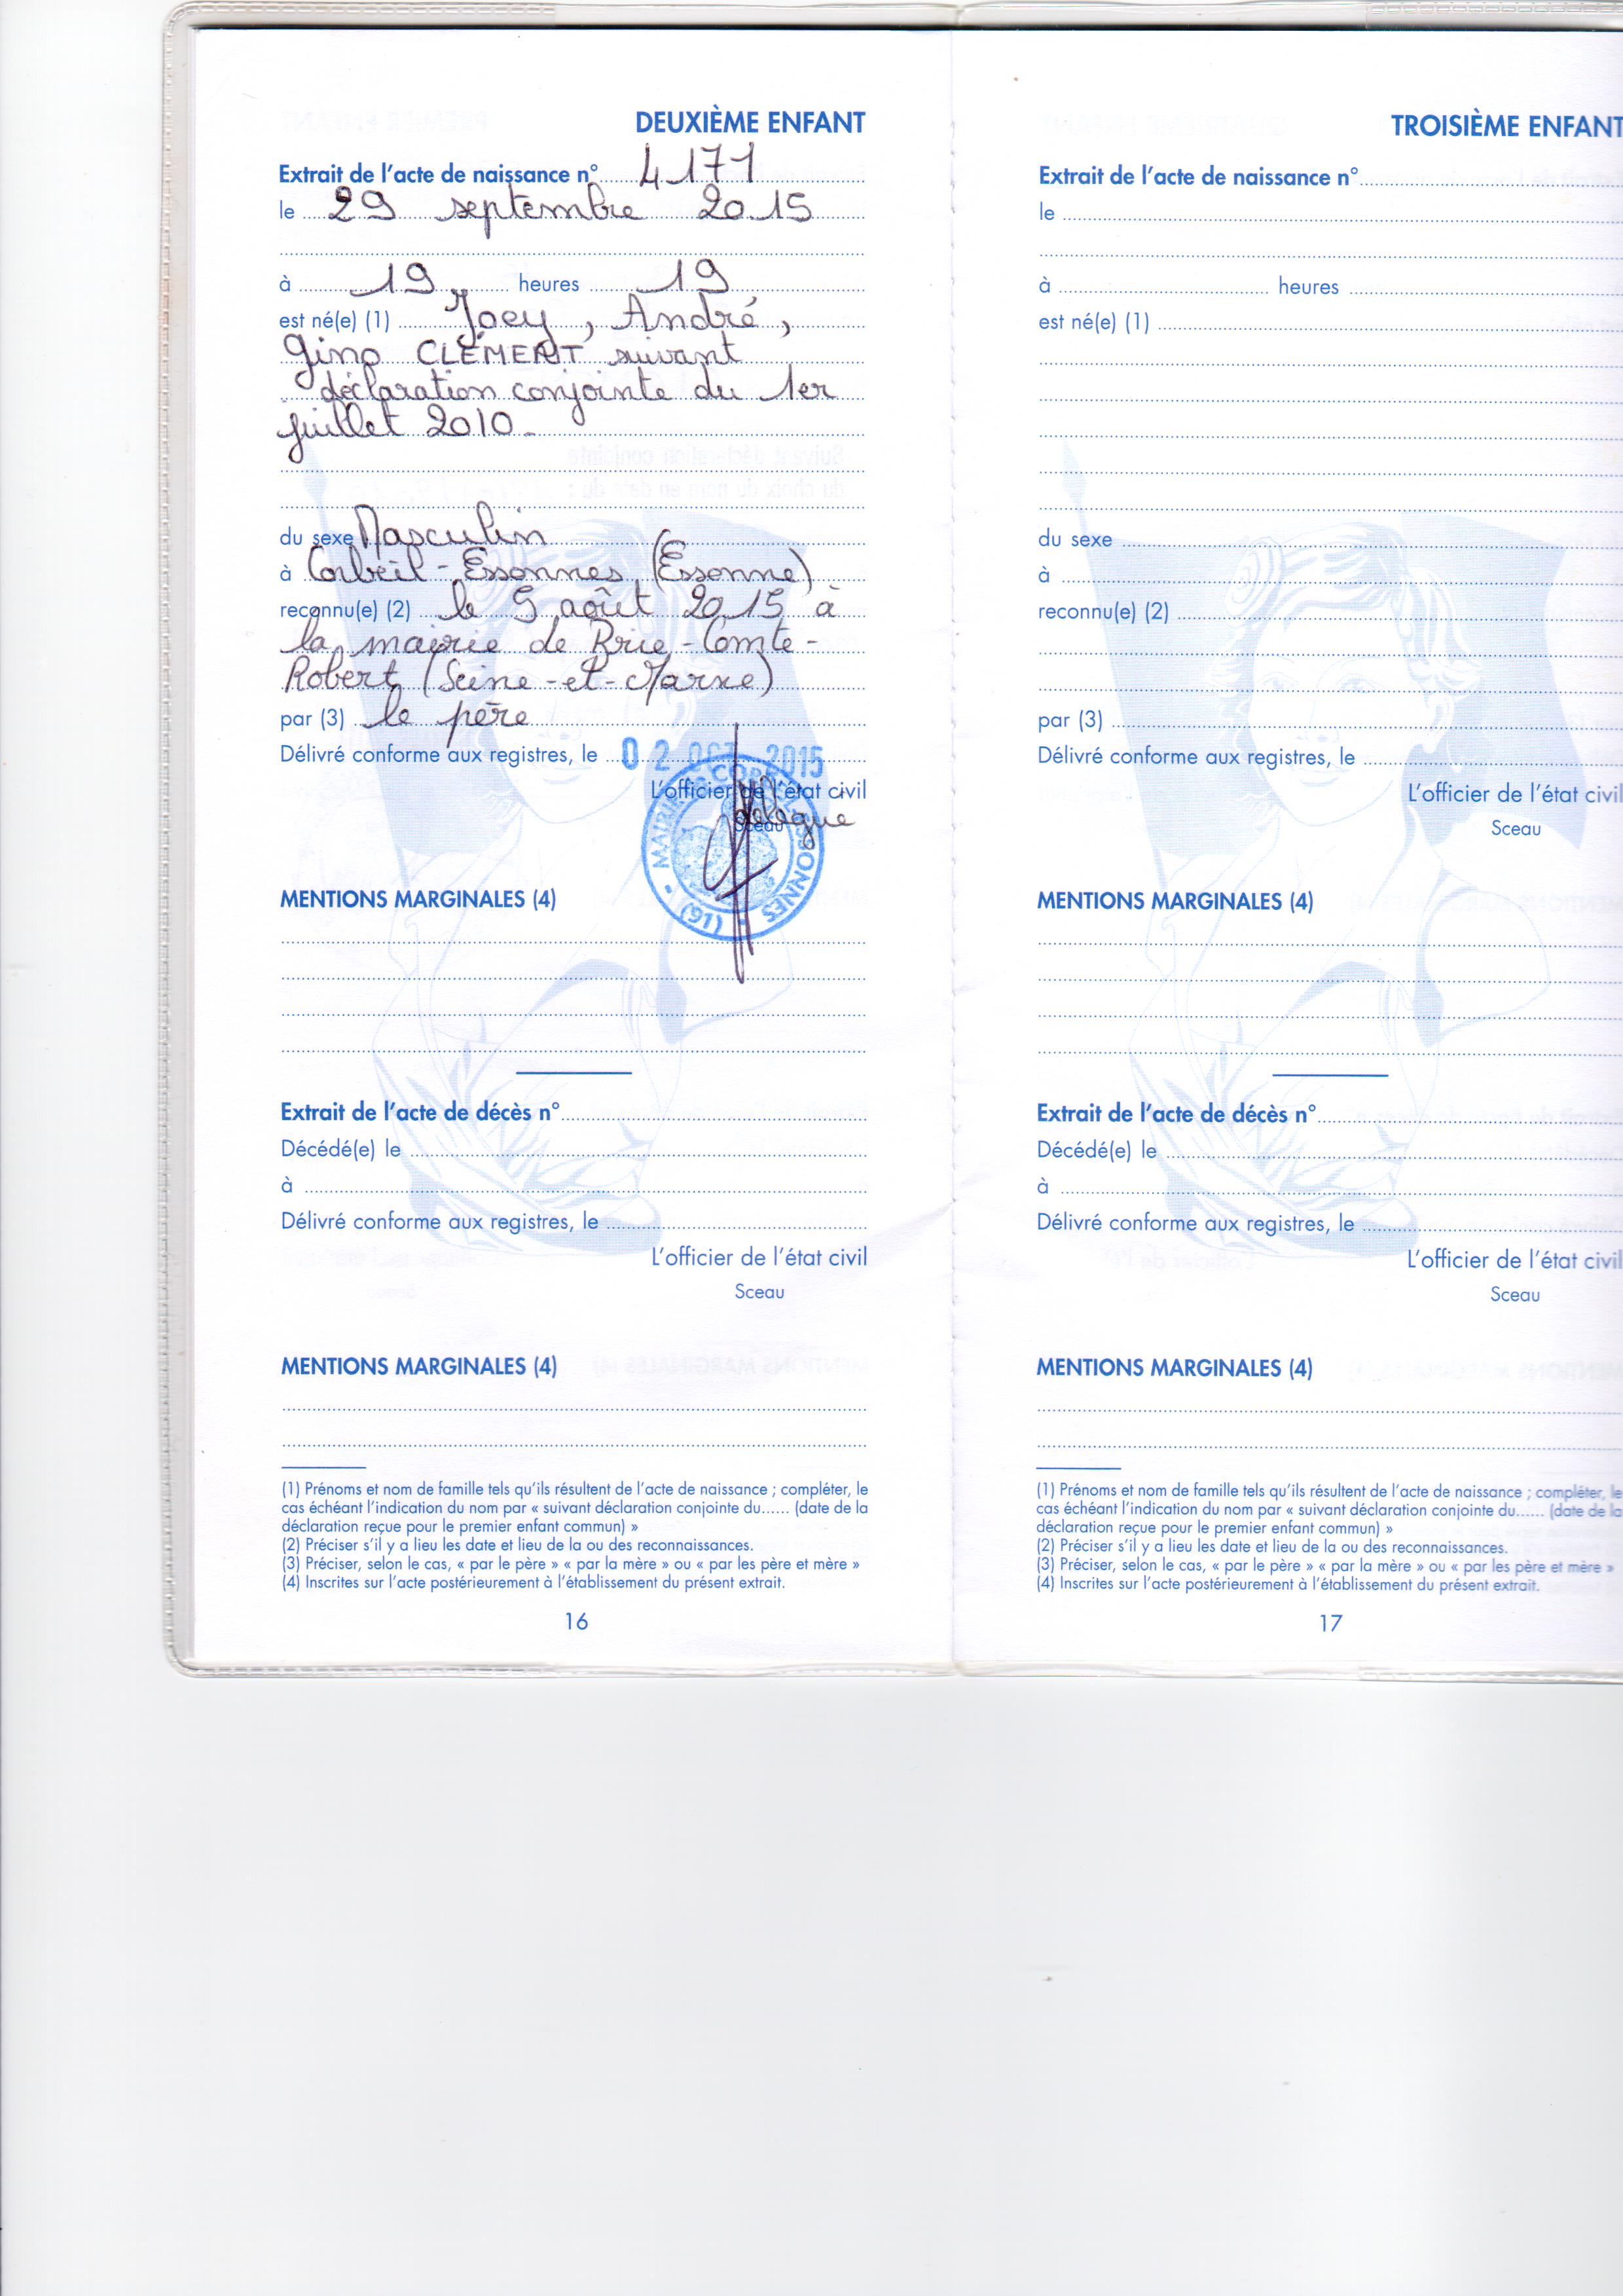 DEUXIÈME ENFANT
Extrait de l'acte de naissance n° 4171
le 29 septembre 2015
à 19 heures 19
est né(e) (1) Joey, André,
Gino CLÉMENT suivant
déclaration conjointe du 1er
juillet 2010-
du sexe Masculin
à Corbeil-Essonnes (Essonne)
reconnu(e) (2) le 5 août 2015 à
la mairie de Brie-Comte-
Robert (Seine-et-Marne)
par (3) le père
Délivré conforme aux registres, le 02 OCT. 2015
L'officier de l'état civil
délégué
Sceau
MAIRIE DE CORBEIL-ESSONNES (91)
MENTIONS MARGINALES (4)
Extrait de l'acte de décès n°
Décédé(e) le
à
Délivré conforme aux registres, le
L'officier de l'état civil
Sceau
MENTIONS MARGINALES (4)
(1) Prénoms et nom de famille tels qu'ils résultent de l'acte de naissance ; compléter, le
cas échéant l'indication du nom par « suivant déclaration conjointe du...... (date de la
déclaration reçue pour le premier enfant commun) »
(2) Préciser s'il y a lieu les date et lieu de la ou des reconnaissances.
(3) Préciser, selon le cas, « par le père » « par la mère » ou « par les père et mère »
(4) Inscrites sur l'acte postérieurement à l'établissement du présent extrait.
16
TROISIÈME ENFANT
Extrait de l'acte de naissance n°
le
à heures
est né(e) (1)
du sexe
à
reconnu(e) (2)
par (3)
Délivré conforme aux registres, le
L'officier de l'état civil
Sceau
MENTIONS MARGINALES (4)
Extrait de l'acte de décès n°
Décédé(e) le
à
Délivré conforme aux registres, le
L'officier de l'état civil
Sceau
MENTIONS MARGINALES (4)
(1) Prénoms et nom de famille tels qu'ils résultent de l'acte de naissance ; compléter, le
cas échéant l'indication du nom par « suivant déclaration conjointe du...... (date de la
déclaration reçue pour le premier enfant commun) »
(2) Préciser s'il y a lieu les date et lieu de la ou des reconnaissances.
(3) Préciser, selon le cas, « par le père » « par la mère » ou « par les père et mère »
(4) Inscrites sur l'acte postérieurement à l'établissement du présent extrait.
17